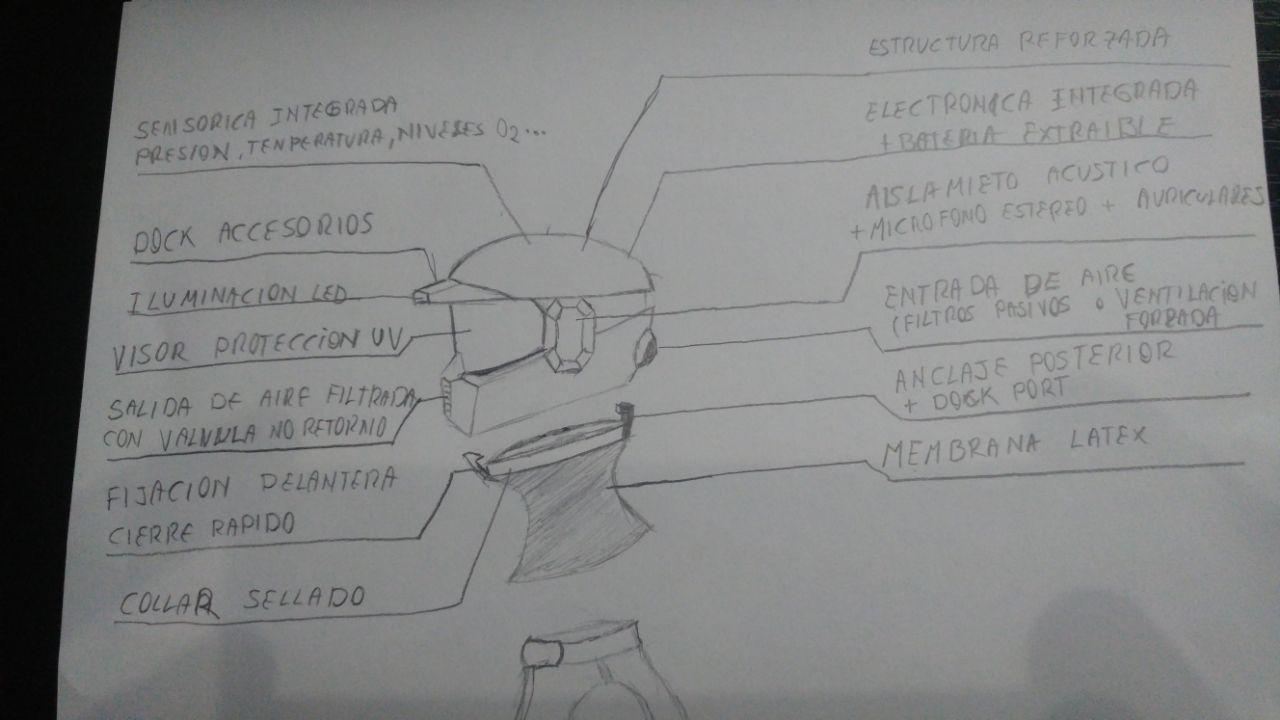 SENSORICA INTEGRADA
PRESION, TENPERATURA, NIVELES O2...
DOCK ACCESORIOS
ILUMINACION LED
VISOR PROTECCION UV
SALIDA DE AIRE FILTRADA
CON VALVULA NO RETORNO
FIJACION DELANTERA
CIERRE RAPIDO
COLLAR SELLADO
ESTRUCTURA REFORZADA
ELECTRONICA INTEGRADA
+ BATERIA EXTRAIBLE
AISLAMIETO ACUSTICO
+ MICROFONO ESTEREO + AURICULARES
ENTRADA DE AIRE
(FILTROS PASIVOS O VENTILACION
FORZADA
ANCLAJE POSTERIOR
+ DOCK PORT
MEMBRANA LATEX